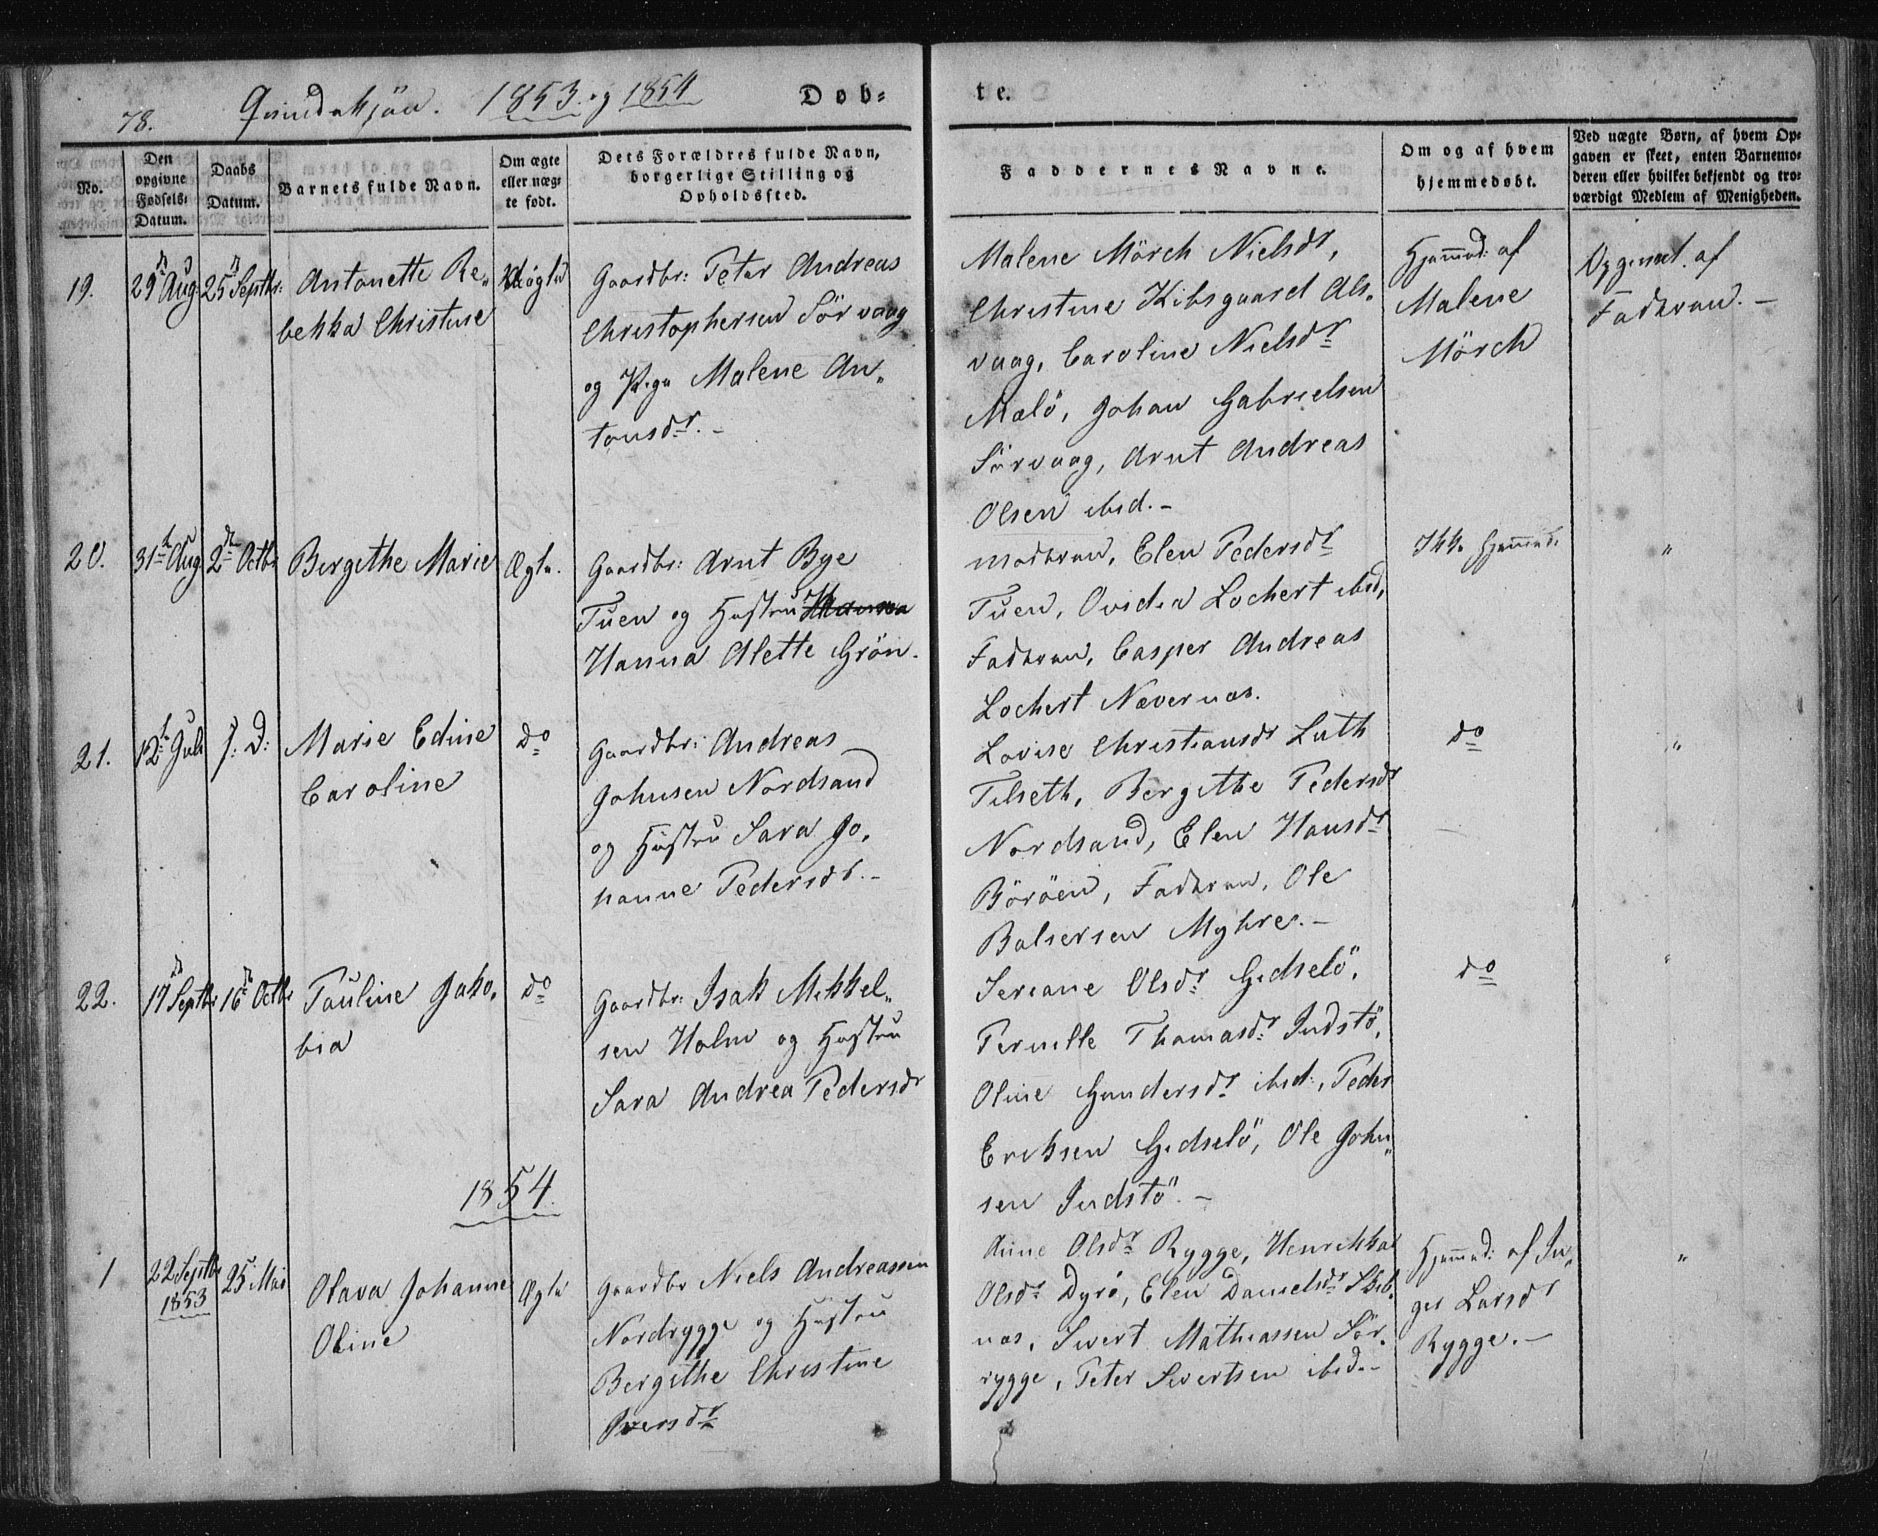 78. Qvindekjön. 1853 og 1854 Dob- te.
No.
Den opgivne Fødsels-Datum.
Daabs Datum.
Barnets fulde Navn.
Om ægte eller uægte født.
Dets Forældres fulde Navn, borgerlige Stilling og Opholdssted.
Faddernes Navne.
Om og af hvem hjemmedøbt.
Ved uægte Børn, af hvem Opgaven er skeet, enten Barnemoderen eller hvilket bekjendt og troværdigt Medlem af Menigheden.
19. 29 Aug. 25 Septbr:
Antonette Re-
bekka Christine
Uægte
Gaardbr: Peter Andreas
Christophersen Sörvaag
og Pige Malene An-
tonsdr. -
Malene Mörch Nielsdr,
Christine Kibsgaard Als-
vaag, Caroline Nielsdr
Mælö, Johan Gabrielsen
Sörvaag, Arnt Andreas
Olsen ibid. -
Hjemmed: af
Malene
Mörch
Opgivet af
Faderen. -
20. 31te Aug 2den Octbr
Bergithe Marie
Ægte.
Gaardbr: Arnt Bye
Tuen og Hustru
Hanna Alette Grön.
Moderen, Elen Pedersdr
Tuen, Ovidia Lochert ibid,
Faderen, Casper Andreas
Lochert Nævernæs.
Ikke Hjemmed:
"
21. 12te Juli s: D:
Marie Edine
Caroline
do
Gaardbr: Andreas
Johnsen Nordsand
og Hustru Sara Jo-
hanne Pedersdr. -
Lovise Christiansdr Luth
Tilseth, Bergithe Pedersdr
Nordsand, Elen Hansdr
Böröen, Faderen, Ole
Balsersen Myhre. -
do
"
22. 17 Septbr 16de Octbr
Pauline Jako-
bia
do
Gaardbr: Isak Mikkel-
sen Holm og Hustru
Sara Andrea Pedersdr
Seriane Olsdr Gidselö,
Pernille Thomasdr Indstö,
Oline Gundersdr ibid:, Peder
Eriksen Gidselö, Ole John-
sen Indstö. -
do
"
1854.
1 22 Septbr 1853 25 Mai
Olava Johanne
Oline
Ægte
Gaardbr Niels Andreassen
Nordrygge og Hustru
Bergithe Christine
Iversdr
Anne Olsdr Rygge, Henrikka
Olsdr Dyrö, Elen Danielsdr Skib-
næs, Sivert Mathiassen Sör-
rygge, Peter Sivertsen ibid. -
Hjemmed: af In-
ger Larsdr
Rygge. -
"